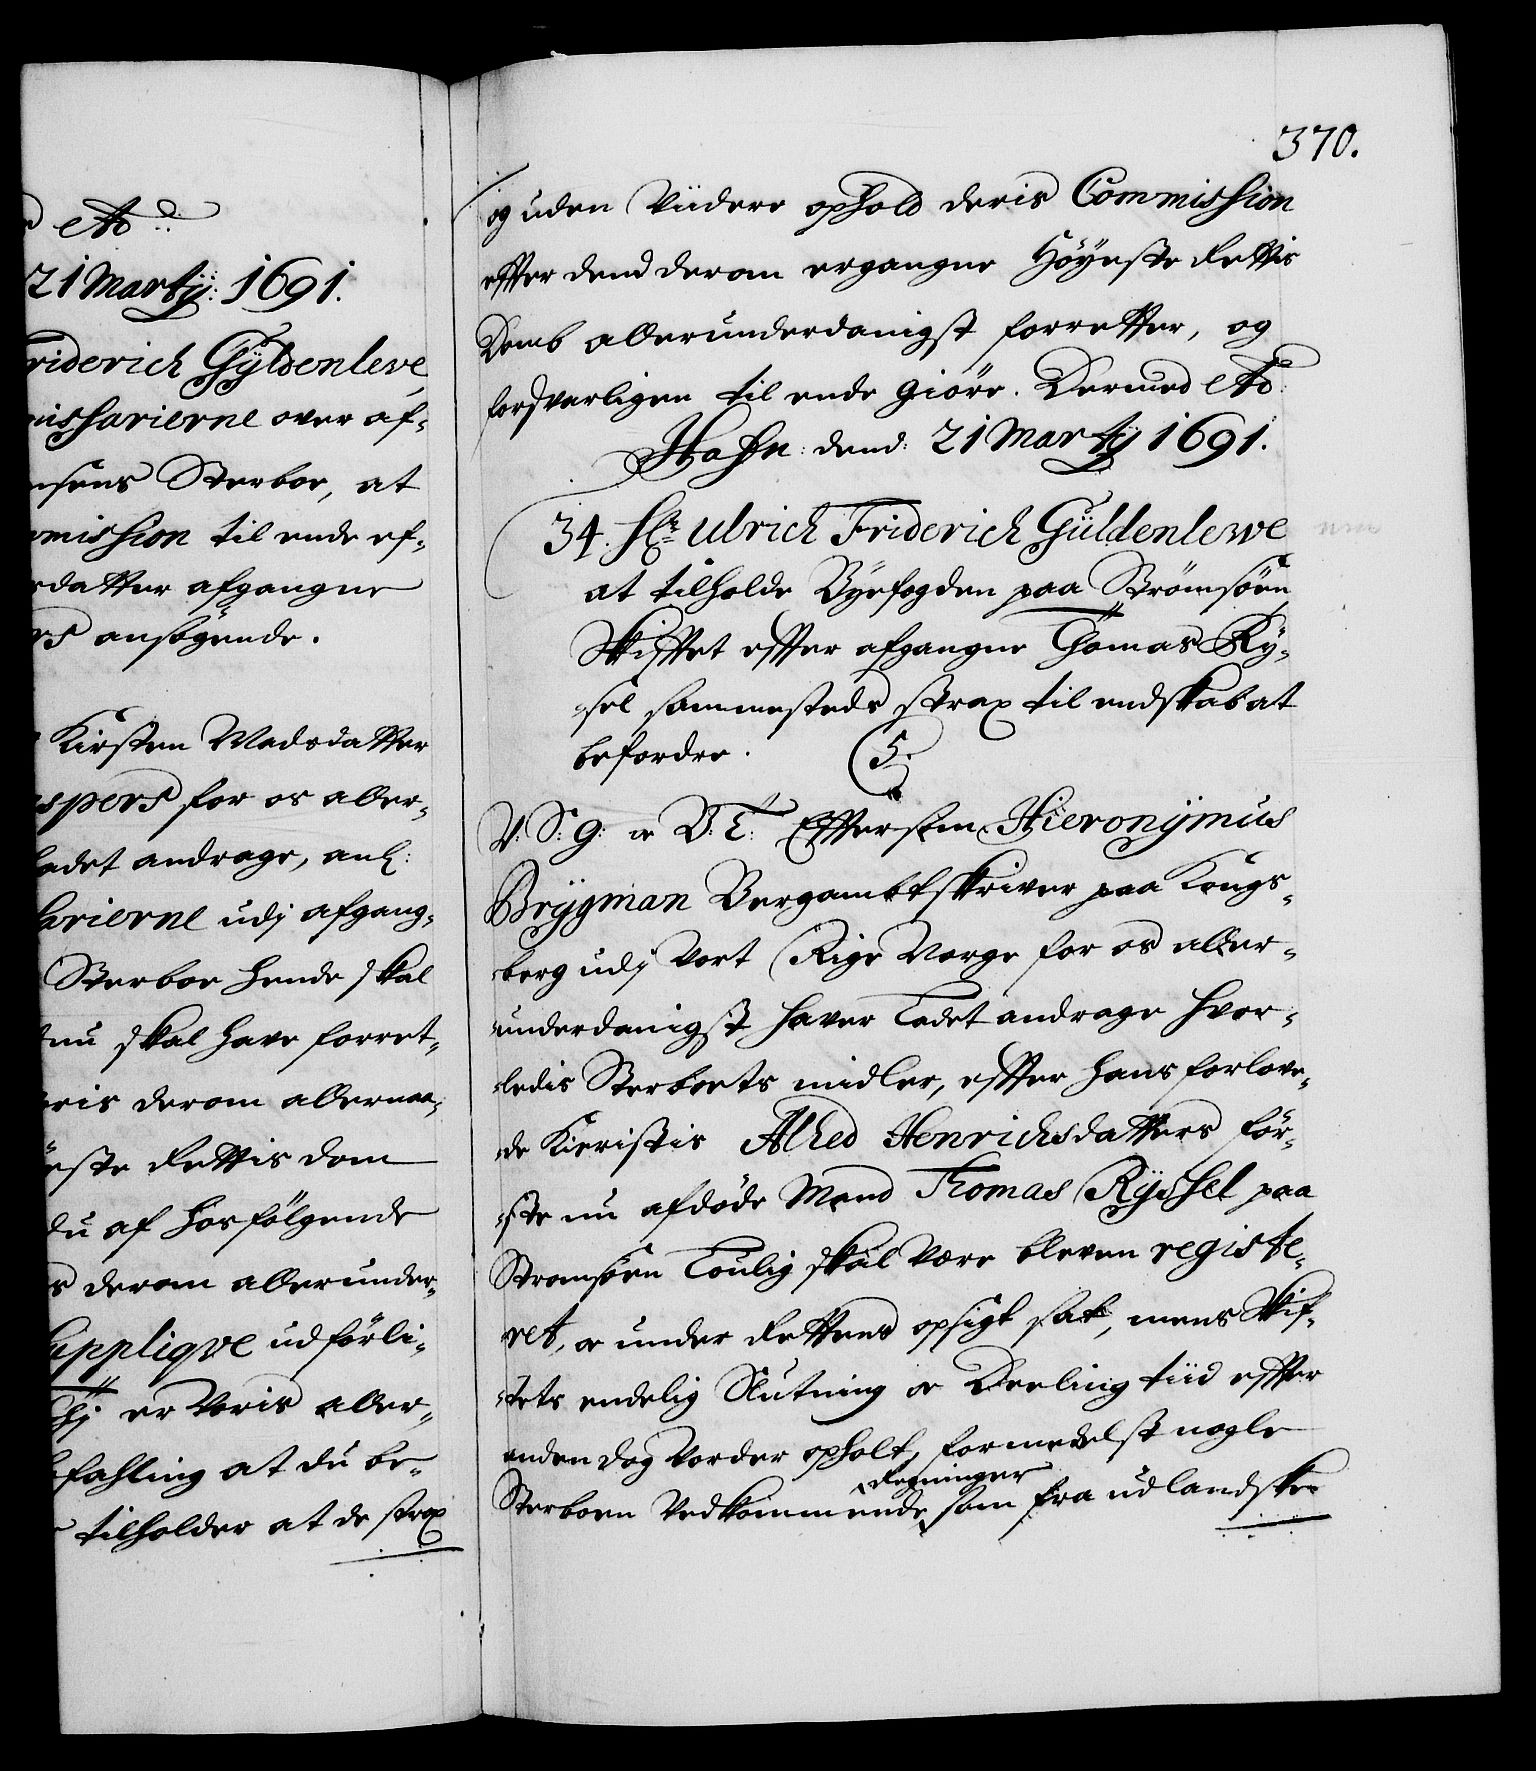 d etc:
21 Martÿ: 1691.
riderich Gÿldenleve,
missarierne over af-
nsens Sterboe, at
mission til ende ef-
rdatter afgangne
rs ansøgende.
Kirsten Madsdatter
spers for os aller-
ladet andrage, anl:
sarierne udj afgang-
Sterboe hende skal
nu skal have forret-
oris derom allernaa-
øeste Rettis dom
du af hosfølgende
s derom allerunder-
Suppliqve udførli-
Thj er Voris aller-
befahling at du be-
tilholder at de strax
370.
og uden Viidere ophold deris Commission
effter dend derom ergangne Høÿeste Rettis
Domb allerunderdanigst forretter, og
forsvarligen til ende giøre. Dermed etc:
Hafn: dend: 21 Martÿ 1691.
34. Hr: Ulrich Friderich Güldenlewe
at tilholde Byefogden paa Strømsøen
Skifftet effter afgangne Thomas Ry-
sel sammesteds strax til endskab at
befordre. (5.)
V: S: G: oc V: T: Eftersom Hieronÿmus
Brÿgman Bergambtskriver paa Kongs-
berg udj Vort Rige Norge for os aller-
underdanigst haver Ladet andrage hvor-
ledis Sterboets midler, effter hans forlove-
de Kieristis Alhed Henrichsdatters før-
ste nu afdøde Mand Thomas Rÿssel paa
Stromsøen Loulig skal være bleven registe-
ret, oc under Rettens opsigt sat, mens Skif-
tets endelig Slutning oc Deeling tiid effter
anden dog vorder opholt, formedelst nogle
Regninger
Sterboen Vedkommende, som fra udlandske